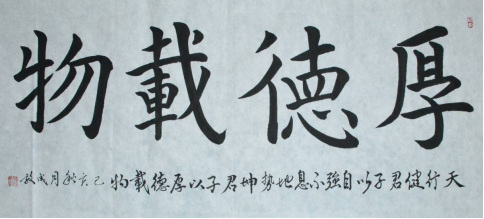 厚德載物
天行健君子以自強不息地勢坤君子以厚德載物己亥秋月成敏